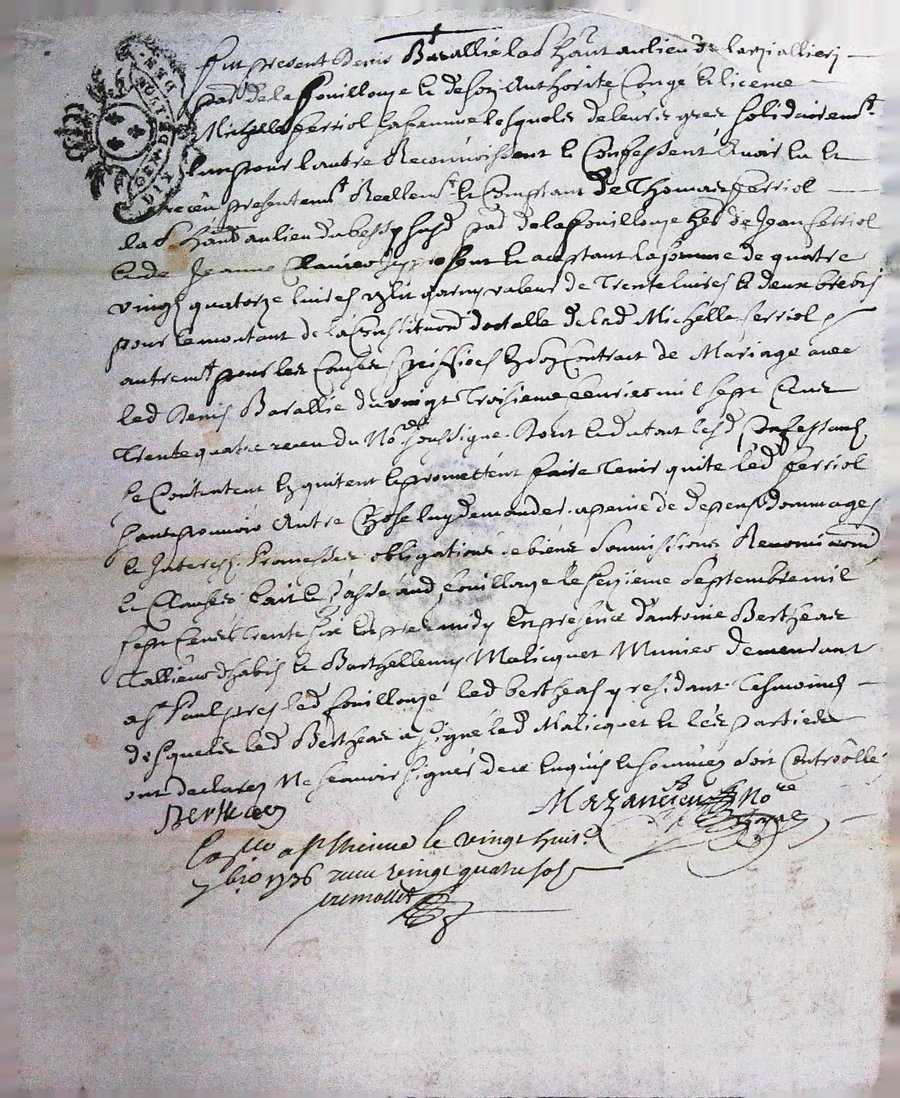 GEN DE LYON
DIX DEN
fut present Denis Barallie lab habitant au lieu de
par de la fouillouze Et de son Authorité Congé Et licence
Michelle ferriol sa femme lesquels de leurs grés solidairemt
l'un pour l'autre Reconnoissent Et Confessent Avoir Eu Et
receu presentemt Reellemt Et Comptant de Thomas ferriol
lab habitant au lieu du par de la fouillouze her de Jean ferriol
Et de Jeanne present Et acceptant la somme de quatre
vingt quatorze livres garny valeur de Trente livres Et deux brebis
pour le montant de la Constitution dotalle de lad Michelle ferriol
autremt pour les Causes En son Contract de Mariage avec
led Denis Barallie du vingt Troisieme fevrier mil sept Cent
Trente quatre receu du Nore soussigné. Dont Et du tout lesd Confessants
se Contentent En quitent Et promettent faire Tenir quite led ferriol
sans pouvoir Autre Chose luy demander a peine de depens dommages
Et Interests Promesses obligations de biens soumissions Renonciaons
Et Clauses fait Et Passé aud fouillouze le seizieme Septembre mil
sept Cent Trente six Enpres midy En presence d'antoine Bertheas
Tallieur d'habits Et Barthellemy Malicquet Munier demeurant
a St Paul pres led fouillouze led bertheas y residant Tesmoins
desquels led Bertheas a signé led Malicquet Et les parties
ont declarez Ne scavoir signer de ce Enquis Et sommez soit Controollé
Bertheas
Nore
Royal
a St Etienne le vingt huit
7bre 1736 receu vingt quatre sols